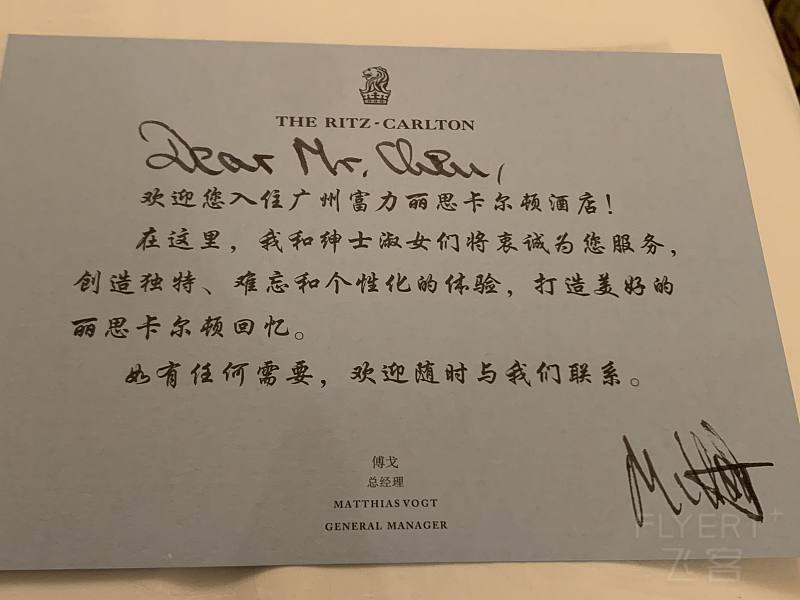 THE RITZ-CARLTON
Dear Mr. Chen,
欢迎您入住广州富力丽思卡尔顿酒店！
在这里，我和绅士淑女们将衷诚为您服务，
创造独特、难忘和个性化的体验，打造美好的
丽思卡尔顿回忆。
如有任何需要，欢迎随时与我们联系。
傅戈
总经理
MATTHIAS VOGT
GENERAL MANAGER
FLYERT+
飞客